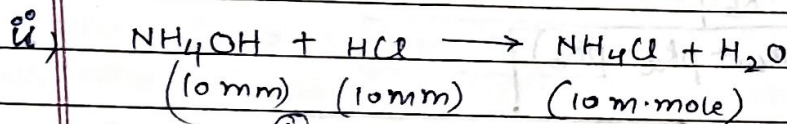 ii) NH₄OH + HCl ⟶ NH₄Cl + H₂O
(10 mm) (10mm) (10 m.mole)